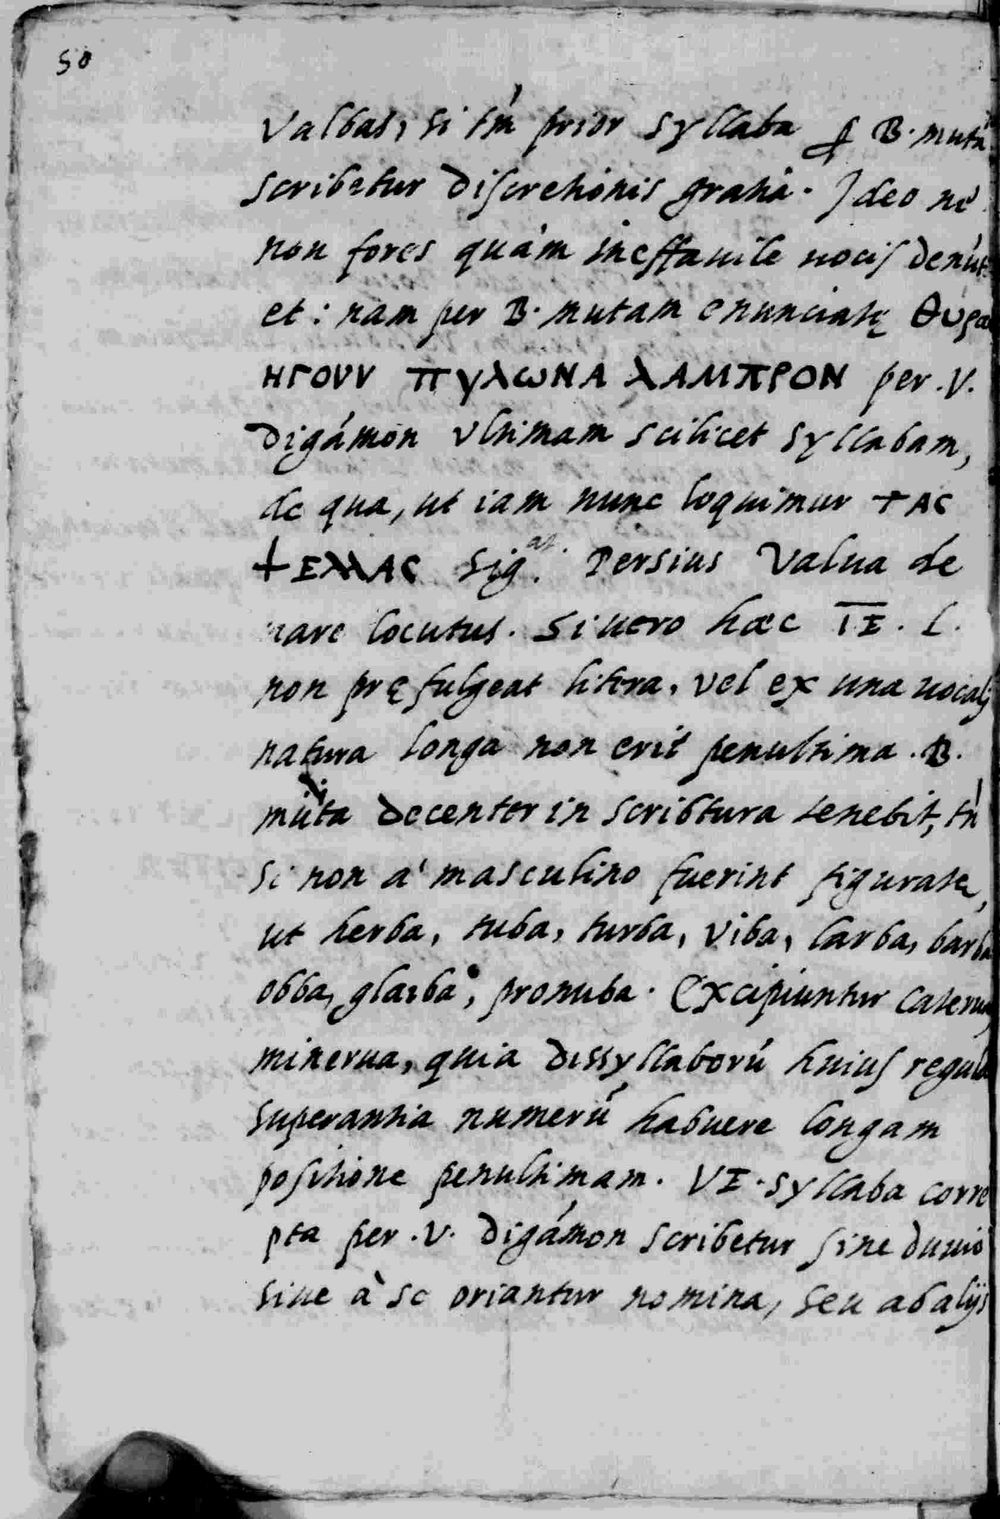 50
valbas, si tm̄ prior syllaba ꝑ B. mutã
scribetur discretionis gratia. Ideo ne
non fores quám ineffauile uocis denút
et: nam per B. mutam enunciatę θυρα
ΗΓΟΥΝ ΠΥλωΝΑ λΑΜΠΡΟΝ per .V.
digámon vltimam scilicet syllabam,
de qua, ut iam nunc loquimur ϯΑϹ
ϯΕλλΑϹ Sigat. Persius Valua de
nare locutus. Si uero hæc I͞E. L.
non pręfulgeat litera, vel ex una uocali
natura longa non erit penultima. B.
muta decenter in scribtura tenebit, tń
si non a' masculino fuerint figurata,
ut herba, tuba, turba, viba, larba, barba
obba, glaeba, pronuba. Excipiuntur caterua
minerua, quia dissyllaború huius regula
superantia numerú habuere longam
positione penultimam. VI. syllaba corre
pta per .V. digámon scribetur sine duuio
siue à se oriantur nomina, seu ab alijs